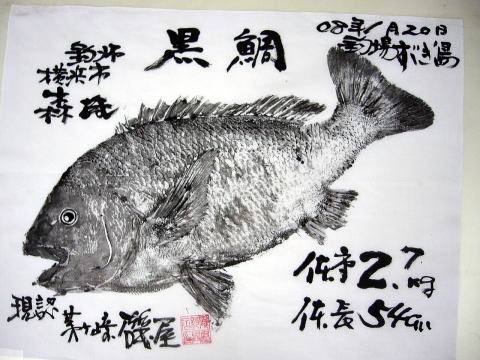 黒鯛
08年1月20日
釣場 ずき島
釣師
横浜市
森 氏
2.7kg
体長 54cm
現認
茅ヶ崎 磯屋